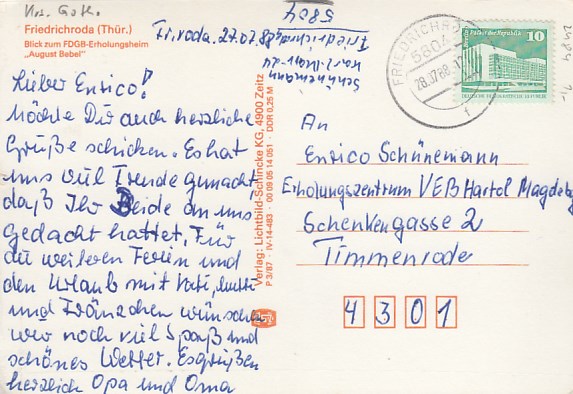 Krs. Goth.
Friedrichroda (Thür.)
Blick zum FDGB-Erholungsheim
„August Bebel"
Fr.roda. 27.07.88
5804
Friedrichroda
Schünemann
Lieber Enrico!
Möchte Dir auch herzliche
Grüße schicken. Es hat
uns viel Freude gemacht,
daß Ihr Beide an uns
gedacht hattet. Für
die weiteren Ferien und
den Urlaub mit Vati, Mutti
und Fränzchen wünschen
wir noch viel Spaß und
schönes Wetter. Es grüßen
herzlich Opa und Oma
Verlag: Lichtbild-Schincke KG, 4900 Zeitz
P 3/87 · IV-14-483 · 00 09 05 14 051 · DDR 0,25 M
FRIEDRICHRODA
5804
28.07.88
f
Palast der Republik
10
An
Enrico Schünemann
Erholungszentrum VEB Hartol Magdebg
Schenkengasse 2
Timmenrode
4 3 0 1
2484 1,-